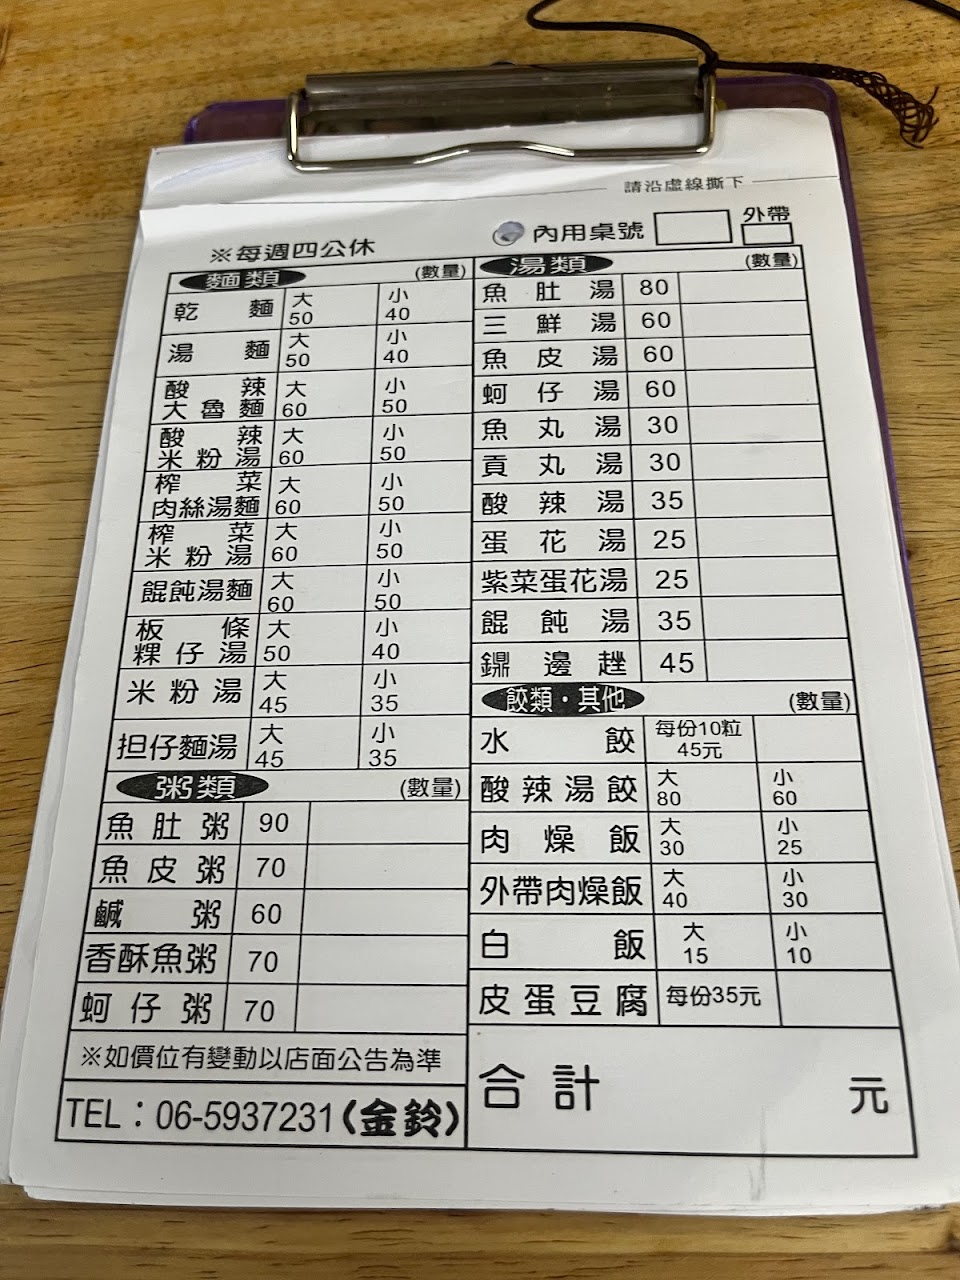 請沿虛線撕下
※每週四公休
內用桌號 外帶
麵類 (數量)
乾麵 大 50 小 40
湯麵 大 50 小 40
酸辣大魯麵 大 60 小 50
酸辣米粉湯 大 60 小 50
榨菜肉絲湯麵 大 60 小 50
榨菜米粉湯 大 60 小 50
餛飩湯麵 大 60 小 50
板條粿仔湯 大 50 小 40
米粉湯 大 45 小 35
担仔麵湯 大 45 小 35
粥類 (數量)
魚肚粥 90
魚皮粥 70
鹹粥 60
香酥魚粥 70
蚵仔粥 70
※如價位有變動以店面公告為準
TEL：06-5937231(金鈴)
湯類 (數量)
魚肚湯 80
三鮮湯 60
魚皮湯 60
蚵仔湯 60
魚丸湯 30
貢丸湯 30
酸辣湯 35
蛋花湯 25
紫菜蛋花湯 25
餛飩湯 35
鍋邊趖 45
餃類・其他 (數量)
水餃 每份10粒 45元
酸辣湯餃 大 80 小 60
肉燥飯 大 30 小 25
外帶肉燥飯 大 40 小 30
白飯 大 15 小 10
皮蛋豆腐 每份35元
合計 元